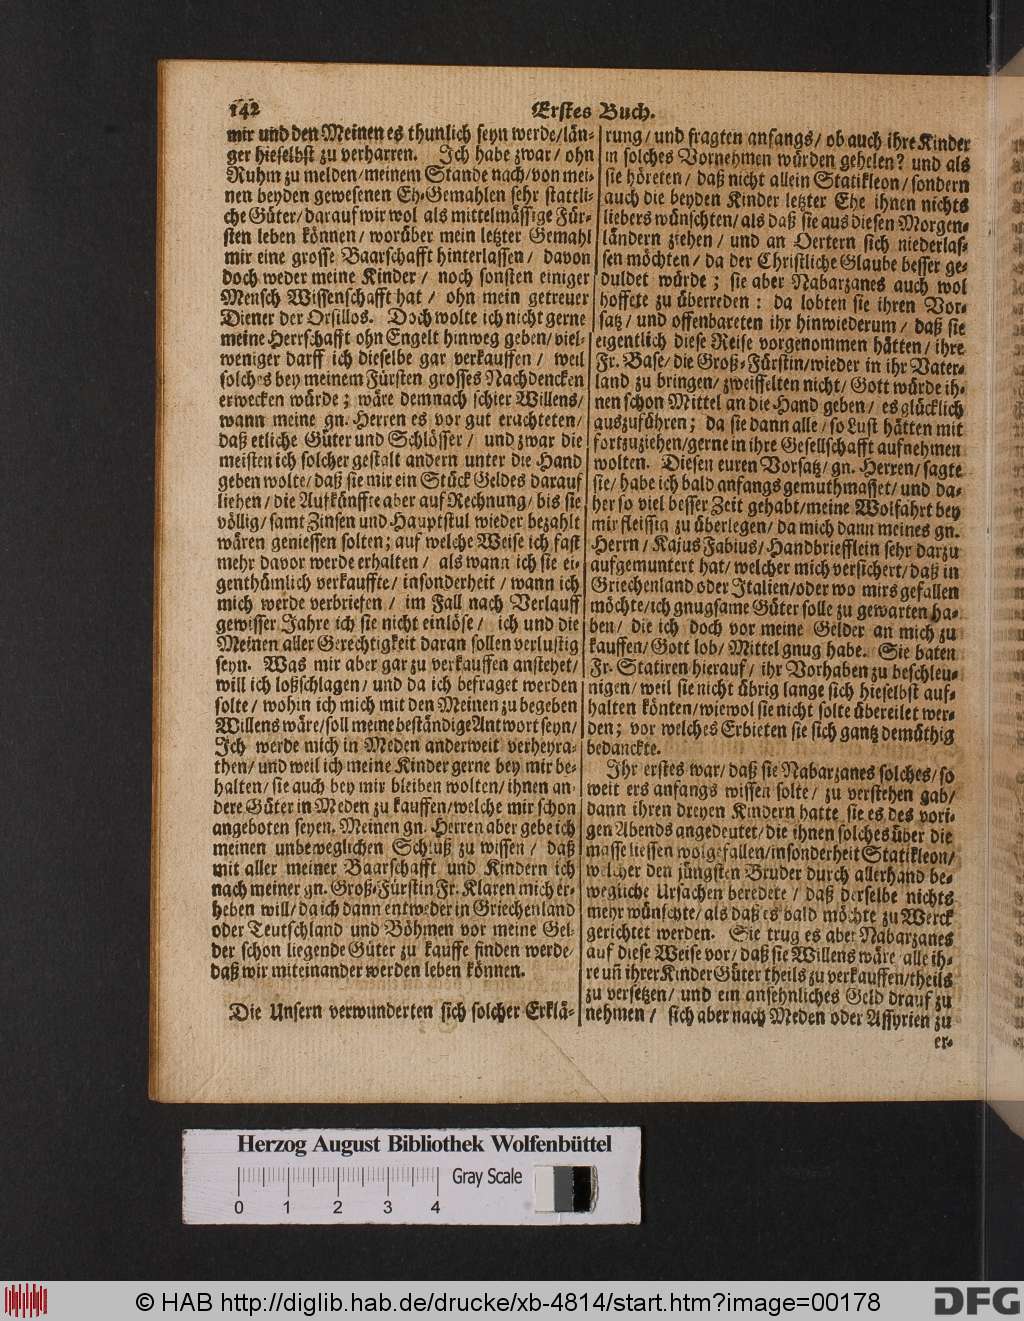 142
Erstes Buch.
mir und den Meinen es thunlich seyn werde/län-
ger hieselbst zu verharren. Ich habe zwar/ ohn
Ruhm zu melden/meinem Stande nach/von mei-
nen beyden gewesenen Eh-Gemahlen sehr stattli-
che Güter/darauf wir wol als mittelmässige Für-
sten leben können/ worüber mein letzter Gemahl
mir eine grosse Baarschafft hinterlassen/ davon
doch weder meine Kinder/ noch sonsten einiger
Mensch Wissenschafft hat/ ohn mein getreuer
Diener der Orsillos. Doch wolte ich nicht gerne
meine Herrschafft ohn Engelt hinweg geben/viel-
weniger darff ich dieselbe gar verkauffen/ weil
solches bey meinem Fürsten grosses Nachdencken
erwecken würde; wäre demnach schier Willens/
wann meine gn. Herren es vor gut erachteten/
daß etliche Güter und Schlösser/ und zwar die
meisten ich solcher gestalt andern unter die Hand
geben wolte/daß sie mir ein Stück Geldes darauf
liehen/die Aufkünffte aber auf Rechnung/bis sie
völlig/samt Zinsen und Hauptstul wieder bezahlt
wären geniessen solten; auf welche Weise ich fast
mehr davor werde erhalten/ als wann ich sie ei-
genthümlich verkauffte/insonderheit/wann ich
mich werde verbriefen/ im Fall nach Verlauff
gewisser Jahre ich sie nicht einlöse/ ich und die
Meinen aller Gerechtigkeit daran sollen verlustig
seyn. Was mir aber gar zu verkauffen anstehet/
will ich loßschlagen/und da ich befraget werden
solte/wohin ich mich mit den Meinen zu begeben
Willens wäre/soll meine beständige Antwort seyn/
Ich werde mich in Meden anderweit verheyra-
then/und weil ich meine Kinder gerne bey mir be-
halten/sie auch bey mir bleiben wolten/ihnen an-
dere Güter in Meden zu kauffen/welche mir schon
angeboten seyen. Meinen gn. Herren aber gebe ich
meinen unbeweglichen Schluß zu wissen/ daß
mit aller meiner Baarschafft und Kindern ich
nach meiner gn. Groß-Fürstin Fr. Klaren mich er-
heben will/da ich dann entweder in Griechenland
oder Teutschland und Böhmen vor meine Gel-
der schon liegende Güter zu kauffe finden werde/
daß wir miteinander werden leben können.
Die Unsern verwunderten sich solcher Erklä-
rung/und fragten anfangs/ob auch ihre Kinder
in solches Vornehmen würden gehelen? und als
sie höreten/ daß nicht allein Statikleon/sondern
auch die beyden Kinder letzter Ehe ihnen nichts
liebers wünschten/als daß sie aus diesen Morgen-
ländern ziehen/ und an Oertern sich niederlas-
sen möchten/da der Christliche Glaube besser ge-
duldet würde; sie aber Nabarzanes auch wol
hoffete zu überreden: da lobten sie ihren Vor-
satz/und offenbareten ihr hinwiederum/ daß sie
eigentlich diese Reise vorgenommen hätten/ihre
Fr. Base/die Groß-Fürstin/wieder in ihr Vater-
land zu bringen/zweiffelten nicht/Gott würde ih-
nen schon Mittel an die Hand geben/es glücklich
auszuführen; da sie dann alle/so Lust hätten mit
fortzuziehen/gerne in ihre Gesellschafft aufnehmen
wolten. Diesen euren Vorsatz/gn. Herren/sagte
sie/habe ich bald anfangs gemuthmasset/und da-
her so viel besser Zeit gehabt/meine Wolfahrt bey
mir fleissig zu überlegen/da mich dann meines gn.
Herrn/Kajus Fabius/Handbriefflein sehr darzu
aufgemuntert hat/welcher mich versichert/daß in
Griechenland oder Italien/oder wo mirs gefallen
möchte/ich gnugsame Güter solle zu gewarten ha-
ben/die ich doch vor meine Gelder an mich zu
kauffen/Gott lob/Mittel gnug habe. Sie baten
Fr. Statiren hierauf/ihr Vorhaben zu beschleu-
nigen/weil sie nicht übrig lange sich hieselbst auf-
halten könten/wiewol sie nicht solte übereilet wer-
den; vor welches Erbieten sie sich gantz demüthig
bedanckte.
Ihr erstes war/daß sie Nabarzanes solches/so
weit ers anfangs wissen solte/ zu verstehen gab/
dann ihren dreyen Kindern hatte sie es des vori-
gen Abends angedeutet/die ihnen solches über die
masse liessen wolgefallen/insonderheit Statikleon/
welcher den jüngsten Bruder durch allerhand be-
wegliche Ursachen beredete/ daß derselbe nichts
mehr wünschte/als daß es bald möchte zu Werck
gerichtet werden. Sie trug es aber Nabarzanes
auf diese Weise vor/daß sie Willens wäre/alle ih-
re uñ ihrer Kinder Güter theils zu verkauffen/theils
zu versetzen/und ein ansehnliches Geld drauf zu
nehmen/ sich aber nach Meden oder Assyrien zu
er-
Herzog August Bibliothek Wolfenbüttel
Gray Scale
0 1 2 3 4
© HAB http://diglib.hab.de/drucke/xb-4814/start.htm?image=00178
DFG